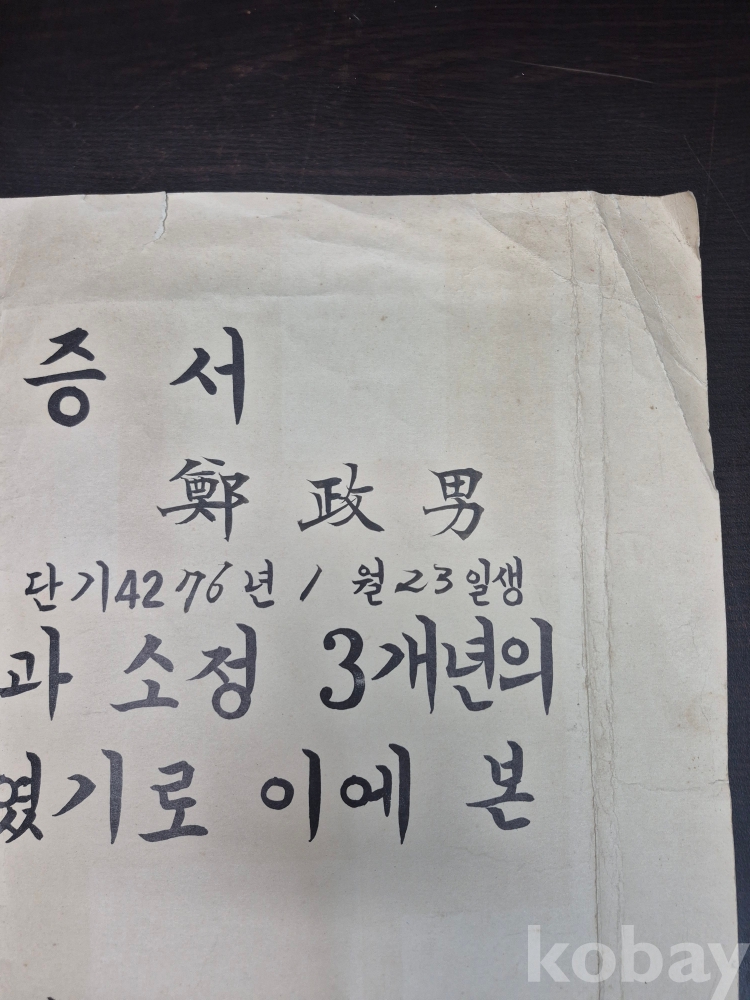 증 서
鄭 政 男
단기4276년 1월 23일생
과 소정 3개년의
였기로 이에 본
kobay